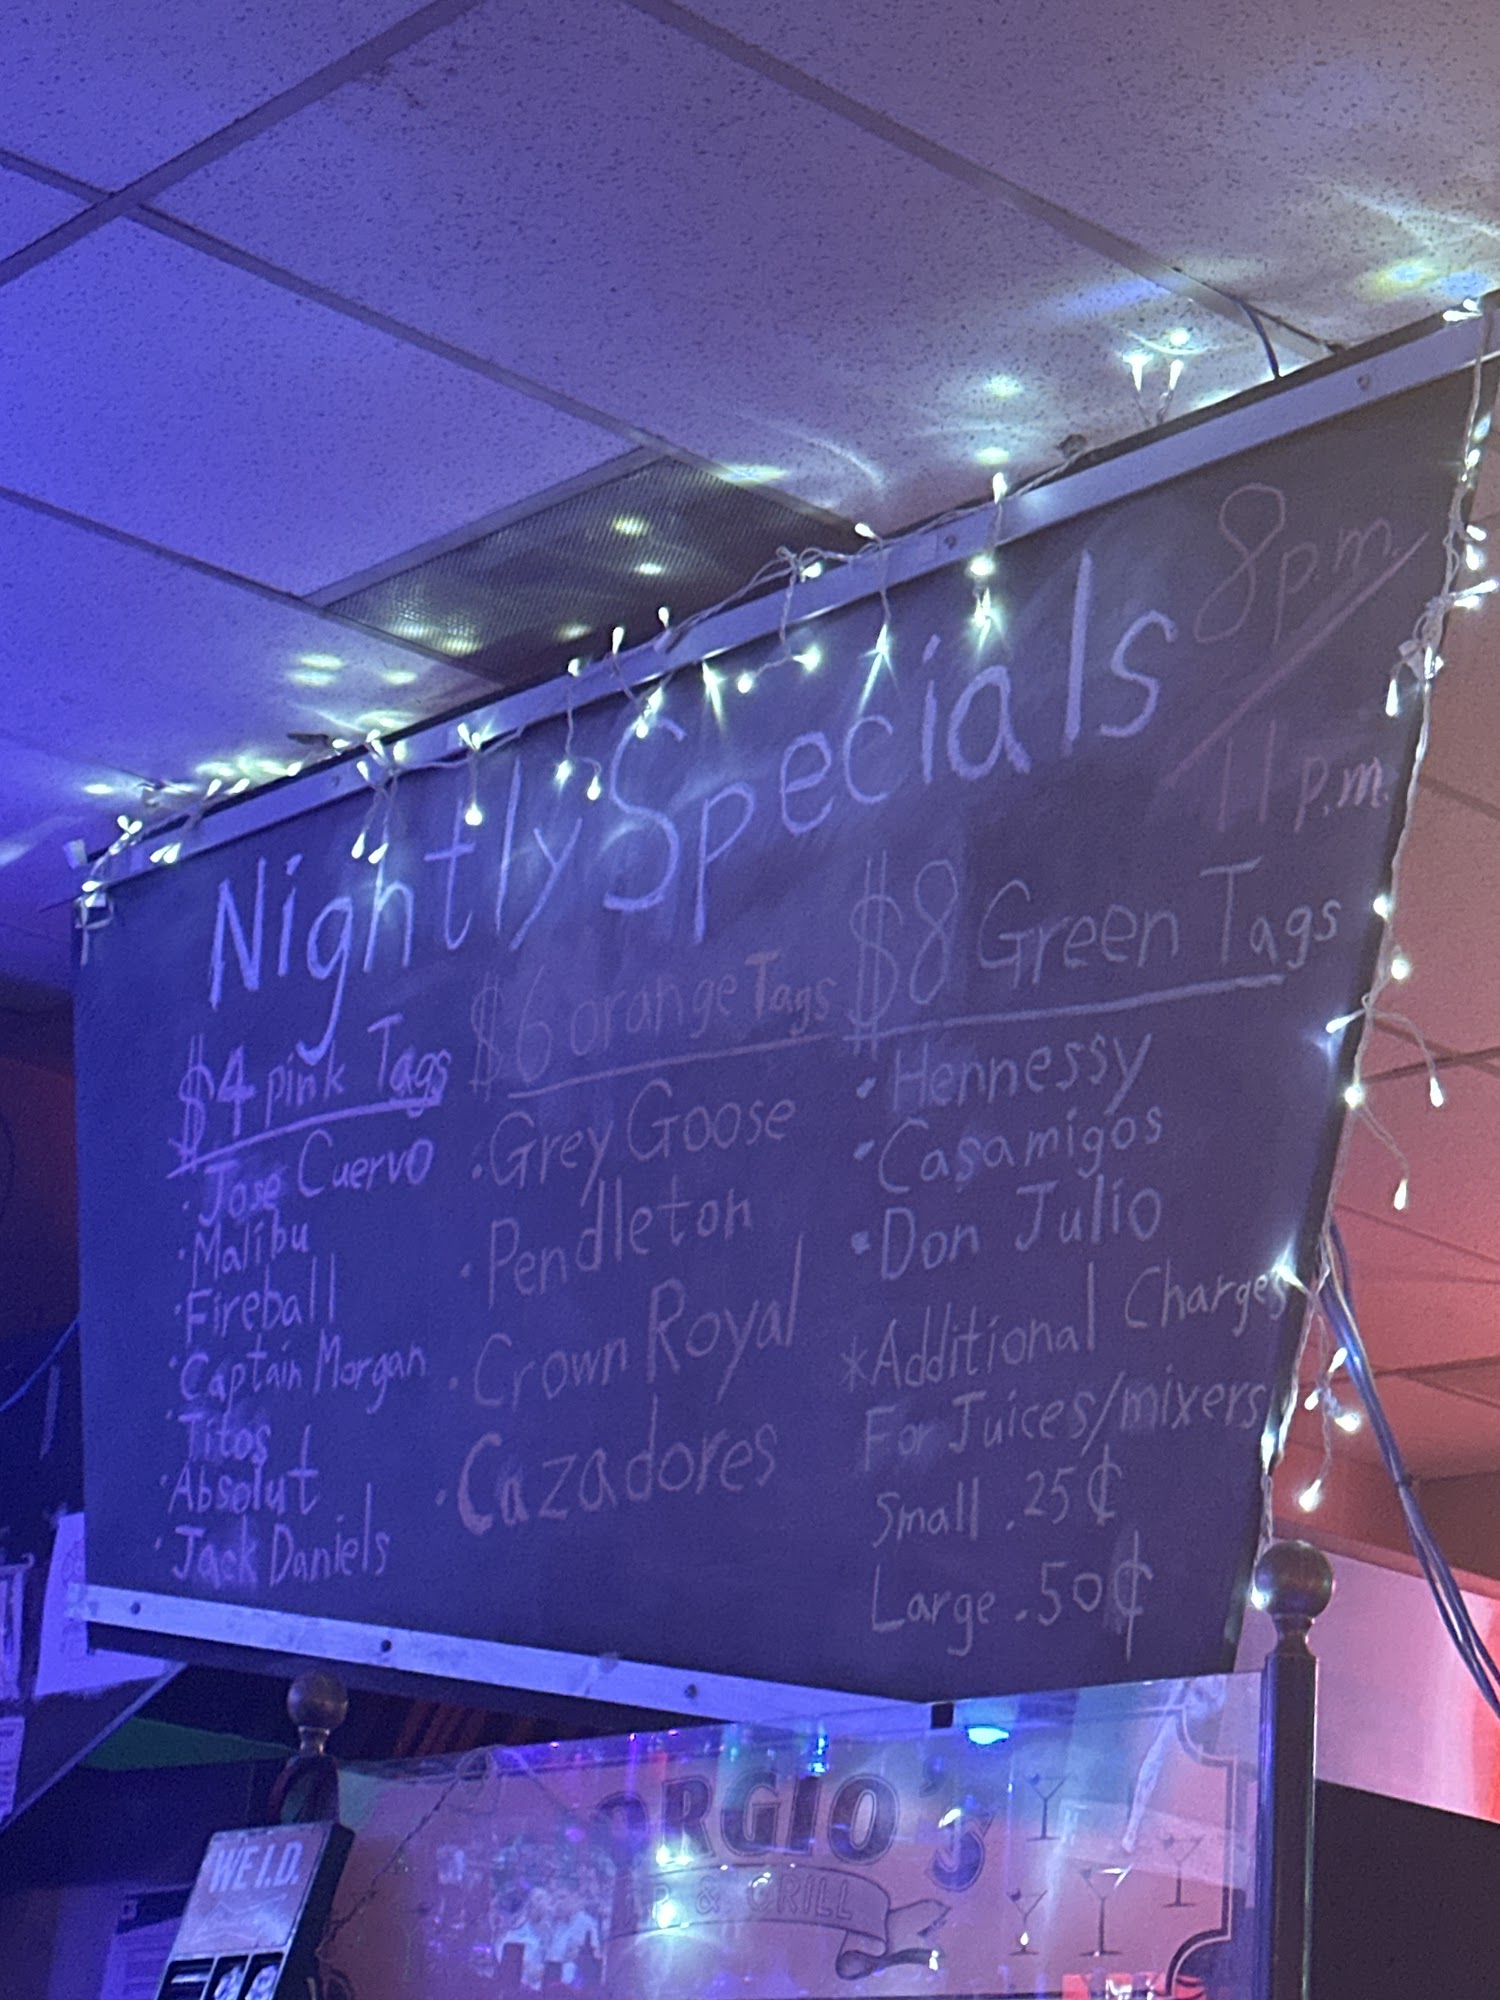 Nightly Specials
8p.m./11p.m.
$4 pink Tags
· Jose Cuervo
· Malibu
· Fireball
· Captain Morgan
· Titos
· Absolut
· Jack Daniels
$6 orange Tags
· Grey Goose
· Pendleton
· Crown Royal
· Cazadores
$8 Green Tags
· Hennessy
· Casamigos
· Don Julio
*Additional Charges
For Juices/mixers
Small .25¢
Large .50¢
WE I.D.
ORGIO'S
& GRILL